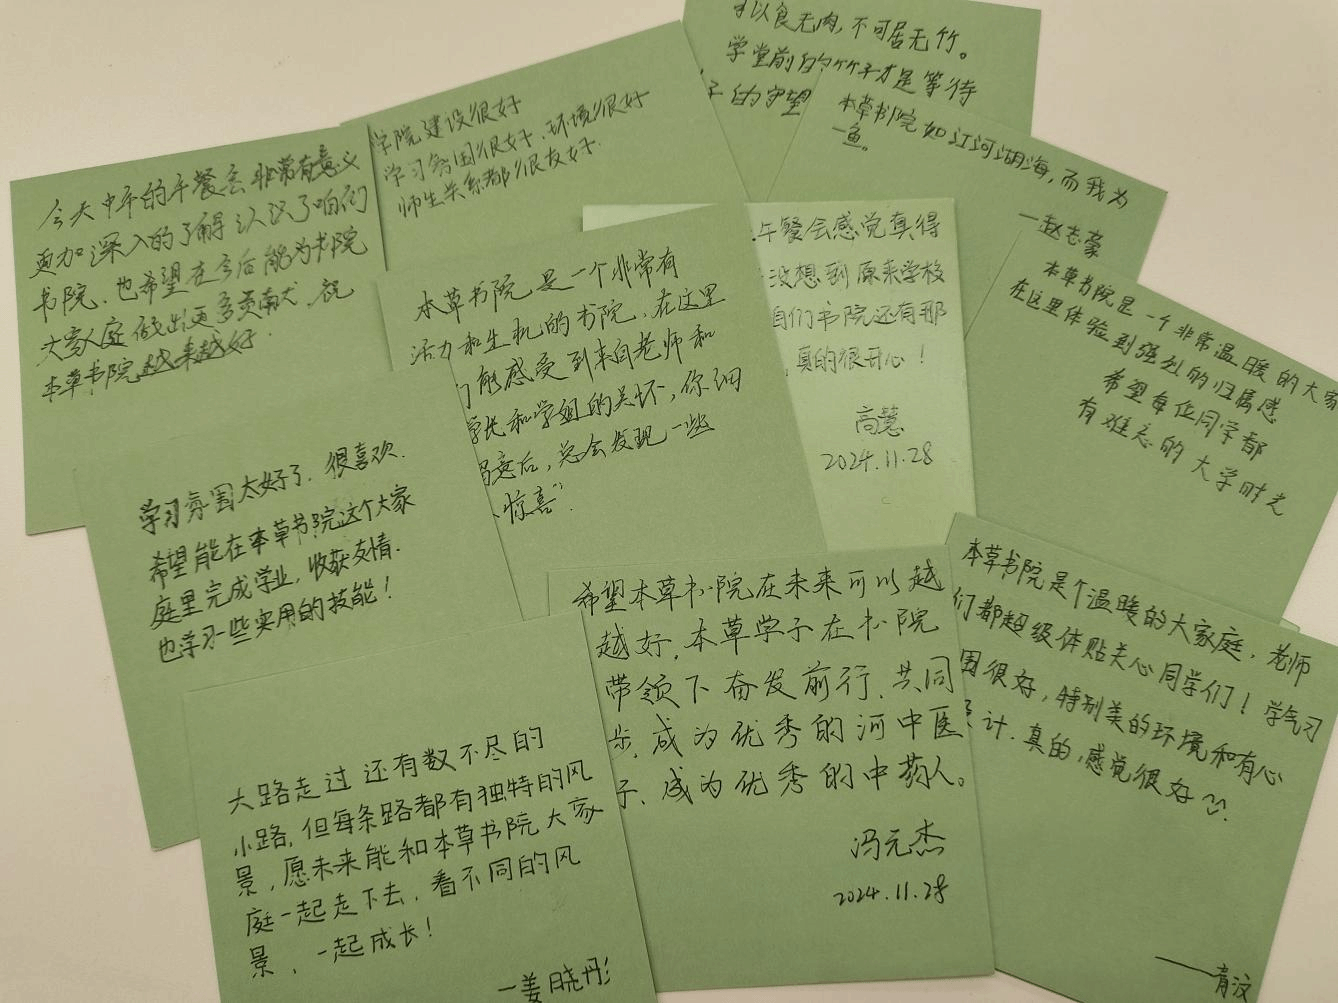 可以食无肉，不可居无竹。
学堂前的竹子才是等待
子的守望
本草书院如江河湖海，而我为
一鱼。
—赵志豪
学院建设很好
学习氛围很好、环境很好
师生关系都很友好.
今天中午的午餐会非常有意义
更加深入的了解认识了咱们
书院、也希望在今后能为书院
大家庭做出更多贡献、祝
本草书院越来越好.
午餐会感觉真得
没想到原来学校
自们书院还有那
,真的很开心！
高慧
2024.11.28
本草书院是一个非常温暖的大家
在这里体验到强烈的归属感
希望每位同学都
有难忘的大学时光
本草书院是一个非常有
活力和生机的书院，在这里
们能感受到来自老师和
学长和学姐的关怀，你细
总会发现一些
惊喜”.
学习氛围太好了.很喜欢.
希望能在本草书院这个大家
庭里完成学业，收获友情.
也学习一些实用的技能！
希望本草书院在未来可以越
越好.本草学子在书院
带领下奋发前行、共同
步，成为优秀的河中医
子、成为优秀的中药人。
冯元杰
2024.11.28
本草书院是个温暖的大家庭，老师
们都超级体贴关心同学们！学习
围很好，特别美的环境和有心
计.真的，感觉很好
大路走过还有数不尽的
小路，但每条路都有独特的风
景，愿未来能和本草书院大家
庭一起走下去，看不同的风
景，一起成长！
—姜晓彤